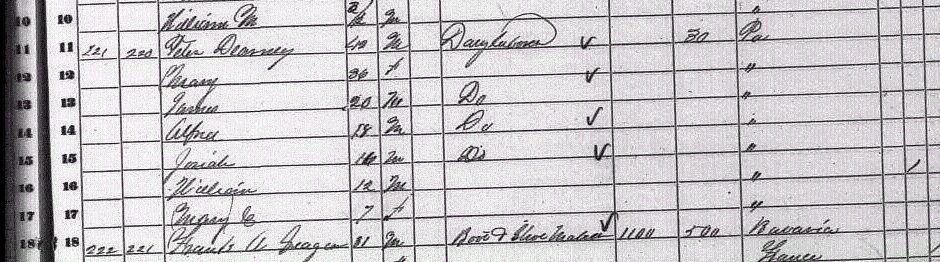 10 10 William M 2/12 M "
11 11 221 220 Peter Dearney 40 M Day Laborer ✓ 30 Pa
12 12 Mary 36 f ✓ "
13 13 James 20 M Do "
14 14 Alfred 18 M Do ✓ "
15 15 Josiah 16 M Do ✓ "
16 16 William 12 M "
17 17 Mary C 7 f "
18 18 222 221 Frank A 31 M Boot & Shoe Maker ✓ 1100 500 Bavaria